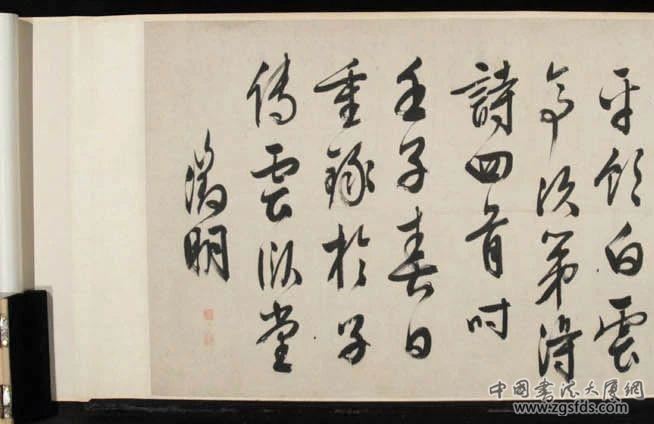 白雲
亭次第得
詩四首時
壬子春日
重錄於子
傳雲臥堂
徵明
中國書法大廈網
www.zgsfds.com